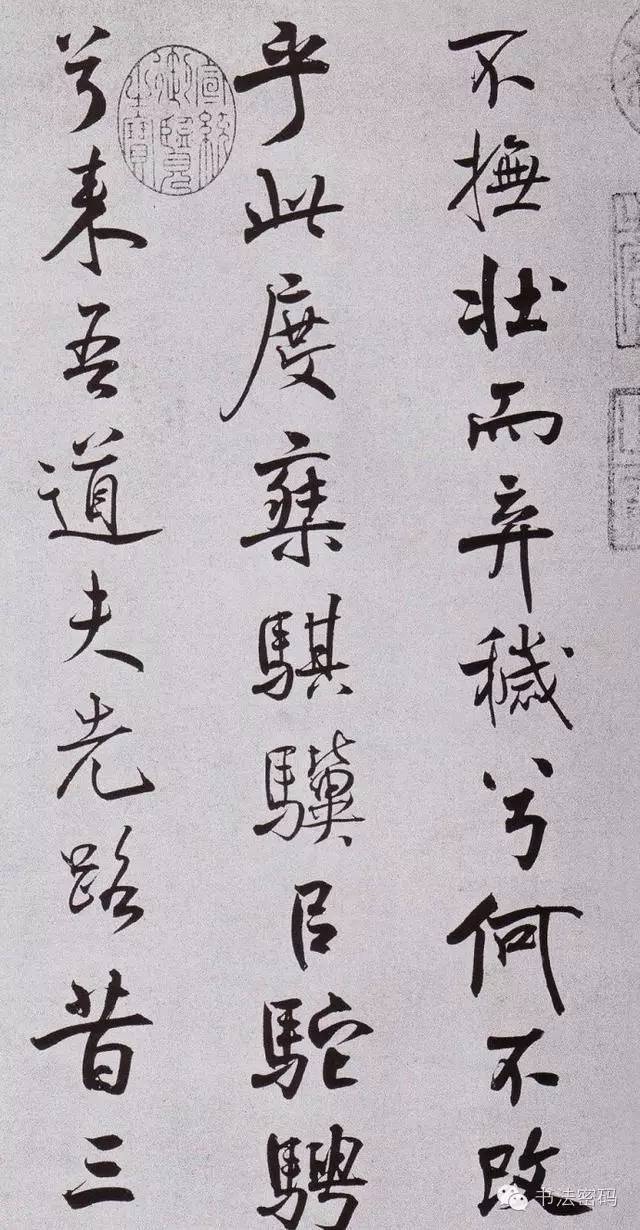 不撫壯而弃穢兮何不改
乎此度椉騏驥㠯駝騁
兮来吾道夫先路昔三
宣統御覽之寶
书法密码